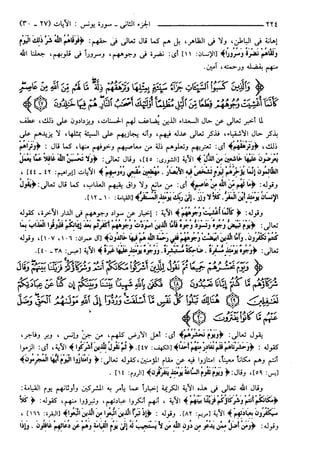 ٢٢٤ الجزء الثاني - سورة يونس : الآيات (٢٧ - ٣٠)
إهانة في الباطن، ولا في الظاهر، بل هم كما قال تعالى في حقهم: ﴿فَوَقَاهُمُ اللَّهُ شَرَّ ذَلِكَ الْيَوْمِ
وَلَقَّاهُمْ نَضْرَةً وَسُرُورًا﴾ [الإنسان: ١١] أي: نضرة في وجوههم، وسروراً في قلوبهم، جعلنا الله
منهم بفضله ورحمته، آمين.
وَالَّذِينَ كَسَبُوا السَّيِّئَاتِ جَزَاءُ سَيِّئَةٍ بِمِثْلِهَا وَتَرْهَقُهُمْ ذِلَّةٌ مَا لَهُمْ مِنَ اللَّهِ مِنْ عَاصِمٍ
كَأَنَّمَا أُغْشِيَتْ وُجُوهُهُمْ قِطَعًا مِنَ اللَّيْلِ مُظْلِمًا أُولَئِكَ أَصْحَابُ النَّارِ هُمْ فِيهَا خَالِدُونَ
لما أخبر تعالى عن حال السعداء الذين يُضاعف لهم الحسنات، ويزدادون على ذلك، عطف
بذكر حال الأشقياء، فذكر تعالى عدله فيهم، وأنه يجازيهم على السيئة بمثلها، لا يزيدهم على
ذلك، ﴿وَتَرْهَقُهُمْ﴾ أي: تعتريهم وتعلوهم ذلة من معاصيهم وخوفهم منها، كما قال: ﴿وَتَرَاهُمْ
يُعْرَضُونَ عَلَيْهَا خَاشِعِينَ مِنَ الذُّلِّ﴾ الآية [الشورى: ٤٥]، وقال تعالى: ﴿وَلَا تَحْسَبَنَّ اللَّهَ غَافِلًا عَمَّا يَعْمَلُ
الظَّالِمُونَ إِنَّمَا يُؤَخِّرُهُمْ لِيَوْمٍ تَشْخَصُ فِيهِ الْأَبْصَارُ. مُهْطِعِينَ مُقْنِعِي رُءُوسِهِمْ﴾ الآيات [إبراهيم: ٤٢ - ٤٤]،
وقوله: ﴿مَا لَهُمْ مِنَ اللَّهِ مِنْ عَاصِمٍ﴾ أي: من مانع ولا واق يقيهم العذاب، كما قال تعالى: ﴿يَقُولُ
الْإِنْسَانُ يَوْمَئِذٍ أَيْنَ الْمَفَرُّ. كَلَّا لَا وَزَرَ. إِلَى رَبِّكَ يَوْمَئِذٍ الْمُسْتَقَرُّ﴾ [القيامة: ١٠ - ١٢].
وقوله: ﴿كَأَنَّمَا أُغْشِيَتْ وُجُوهُهُمْ﴾ الآية: إخبار عن سواد وجوههم في الدار الآخرة، كقوله
تعالى: ﴿يَوْمَ تَبْيَضُّ وُجُوهٌ وَتَسْوَدُّ وُجُوهٌ فَأَمَّا الَّذِينَ اسْوَدَّتْ وُجُوهُهُمْ أَكَفَرْتُمْ بَعْدَ إِيمَانِكُمْ فَذُوقُوا الْعَذَابَ بِمَا
كُنْتُمْ تَكْفُرُونَ. وَأَمَّا الَّذِينَ ابْيَضَّتْ وُجُوهُهُمْ فَفِي رَحْمَةِ اللَّهِ هُمْ فِيهَا خَالِدُونَ﴾ [آل عمران: ١٠٦، ١٠٧]، وقوله
تعالى: ﴿وُجُوهٌ يَوْمَئِذٍ مُسْفِرَةٌ. ضَاحِكَةٌ مُسْتَبْشِرَةٌ. وَوُجُوهٌ يَوْمَئِذٍ عَلَيْهَا غَبَرَةٌ﴾ الآية [عبس: ٣٨ - ٤٠].
وَيَوْمَ نَحْشُرُهُمْ جَمِيعًا ثُمَّ نَقُولُ لِلَّذِينَ أَشْرَكُوا مَكَانَكُمْ أَنْتُمْ وَشُرَكَاؤُكُمْ فَزَيَّلْنَا بَيْنَهُمْ وَقَالَ شُرَكَاؤُهُمْ مَا
كُنْتُمْ إِيَّانَا تَعْبُدُونَ فَكَفَى بِاللَّهِ شَهِيدًا بَيْنَنَا وَبَيْنَكُمْ إِنْ كُنَّا عَنْ عِبَادَتِكُمْ لَغَافِلِينَ
هُنَالِكَ تَبْلُو كُلُّ نَفْسٍ مَا أَسْلَفَتْ وَرُدُّوا إِلَى اللَّهِ مَوْلَاهُمُ الْحَقِّ وَضَلَّ
عَنْهُمْ مَا كَانُوا يَفْتَرُونَ
يقول تعالى: ﴿وَيَوْمَ نَحْشُرُهُمْ﴾ أي: أهل الأرض كلهم، من جن وإنس، وبر وفاجر،
كقوله: ﴿وَحَشَرْنَاهُمْ فَلَمْ نُغَادِرْ مِنْهُمْ أَحَدًا﴾ [الكهف: ٤٧]. ﴿ثُمَّ نَقُولُ لِلَّذِينَ أَشْرَكُوا﴾ الآية، أي: الزموا
أنتم وهم مكاناً معيناً، امتازوا فيه عن مقام المؤمنين، كقوله تعالى: ﴿وَامْتَازُوا الْيَوْمَ أَيُّهَا الْمُجْرِمُونَ﴾
[يس: ٥٩]، وقال: ﴿وَيَوْمَ تَقُومُ السَّاعَةُ يَوْمَئِذٍ يَتَفَرَّقُونَ﴾ [الروم: ١٤].
وقال الله تعالى في هذه الآية الكريمة إخباراً عما يأمر به المشركين وأوثانهم يوم القيامة:
﴿مَكَانَكُمْ أَنْتُمْ وَشُرَكَاؤُكُمْ فَزَيَّلْنَا بَيْنَهُمْ﴾ الآية، أنهم أنكروا عبادتهم، وتبرؤوا منهم، كقوله: ﴿كَلَّا
سَيَكْفُرُونَ بِعِبَادَتِهِمْ﴾ الآية [مريم: ٨٢]. وقوله: ﴿إِذْ تَبَرَّأَ الَّذِينَ اتُّبِعُوا مِنَ الَّذِينَ اتَّبَعُوا﴾ [البقرة: ١٦٦]،
وقوله: ﴿وَمَنْ أَضَلُّ مِمَّنْ يَدْعُو مِنْ دُونِ اللَّهِ مَنْ لَا يَسْتَجِيبُ لَهُ إِلَى يَوْمِ الْقِيَامَةِ وَهُمْ عَنْ دُعَائِهِمْ غَافِلُونَ. وَإِذَا